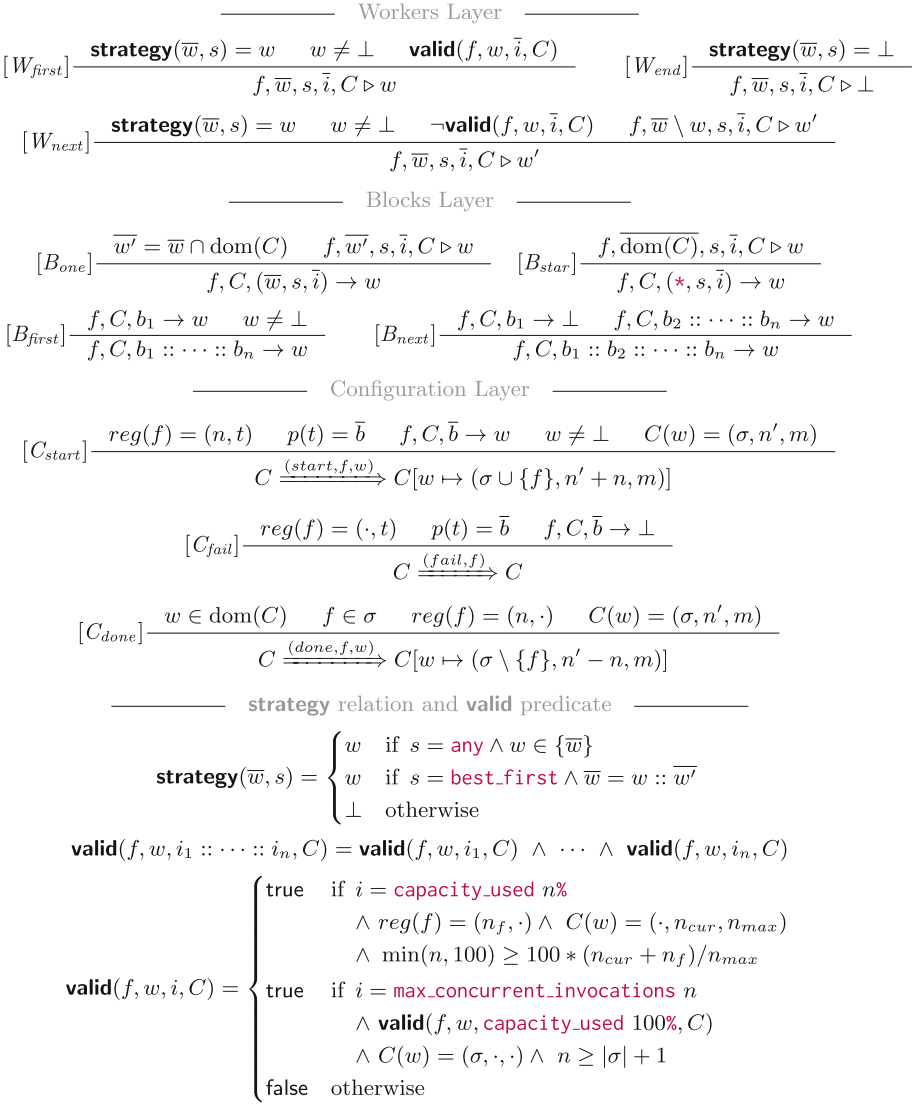 Workers Layer
[W_first] strategy(w̅, s) = w   w ≠ ⊥   valid(f, w, i̅, C)   [W_end] strategy(w̅, s) = ⊥
f, w̅, s, i̅, C ▷ w   f, w̅, s, i̅, C ▷ ⊥
[W_next] strategy(w̅, s) = w   w ≠ ⊥   ¬valid(f, w, i̅, C)   f, w̅ \ w, s, i̅, C ▷ w′
f, w̅, s, i̅, C ▷ w′
Blocks Layer
[B_one] \overline{w′} = w̅ ∩ dom(C)   f, \overline{w′}, s, i̅, C ▷ w   [B_star] f, \overline{dom(C)}, s, i̅, C ▷ w
f, C, (w̅, s, i̅) → w   f, C, (*, s, i̅) → w
[B_first] f, C, b₁ → w   w ≠ ⊥   [B_next] f, C, b₁ → ⊥   f, C, b₂ :: ··· :: bₙ → w
f, C, b₁ :: ··· :: bₙ → w   f, C, b₁ :: b₂ :: ··· :: bₙ → w
Configuration Layer
[C_start] reg(f) = (n, t)   p(t) = b̅   f, C, b̅ → w   w ≠ ⊥   C(w) = (σ, n′, m)
C ==(start,f,w)==> C[w ↦ (σ ∪ {f}, n′ + n, m)]
[C_fail] reg(f) = (·, t)   p(t) = b̅   f, C, b̅ → ⊥
C ==(fail,f)==> C
[C_done] w ∈ dom(C)   f ∈ σ   reg(f) = (n, ·)   C(w) = (σ, n′, m)
C ==(done,f,w)==> C[w ↦ (σ \ {f}, n′ − n, m)]
strategy relation and valid predicate
w   if s = any ∧ w ∈ {w̅}
strategy(w̅, s) = { w   if s = best_first ∧ w̅ = w :: \overline{w′}
⊥   otherwise
valid(f, w, i₁ :: ··· :: iₙ, C) = valid(f, w, i₁, C) ∧ ··· ∧ valid(f, w, iₙ, C)
true   if i = capacity_used n%
∧ reg(f) = (n_f, ·) ∧ C(w) = (·, n_cur, n_max)
∧ min(n, 100) ≥ 100 ∗ (n_cur + n_f)/n_max
valid(f, w, i, C) = { true   if i = max_concurrent_invocations n
∧ valid(f, w, capacity_used 100%, C)
∧ C(w) = (σ, ·, ·) ∧ n ≥ |σ| + 1
false   otherwise